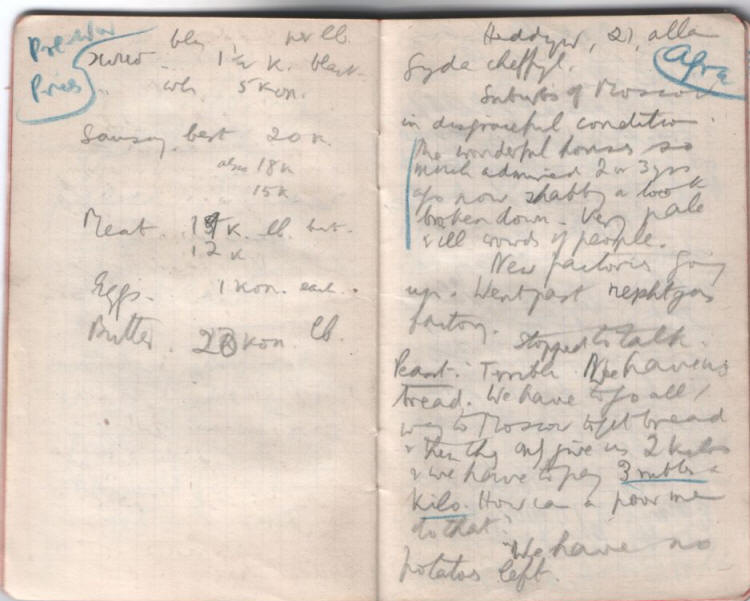 Pre-War
Prices
per lb.
1½ K. black
5 Kon.
best 20 K.
also 18 K
15 K
Meat. K. lb. but
12 K
Eggs. 1 Kon. each.
Butter. Kon lb.
Heddyw, 21, allan
gyda cheffyl.
Suburbs of Moscow
in disgraceful condition.
The wonderful houses so
much admired 2 or 3 yrs
ago now shabby & look
broken down. Very pale
& ill crowds of people.
New factories going
up. Went past nephtgas
factory.
Stopped to talk.
Peasant: Terrible. We haven't
bread. We have to go all
way to Moscow to get bread
& then they only give us 2 kilos
& we have to pay 3 rubles a
kilo. How can a poor man
do that?
"We have no
potatoes left.